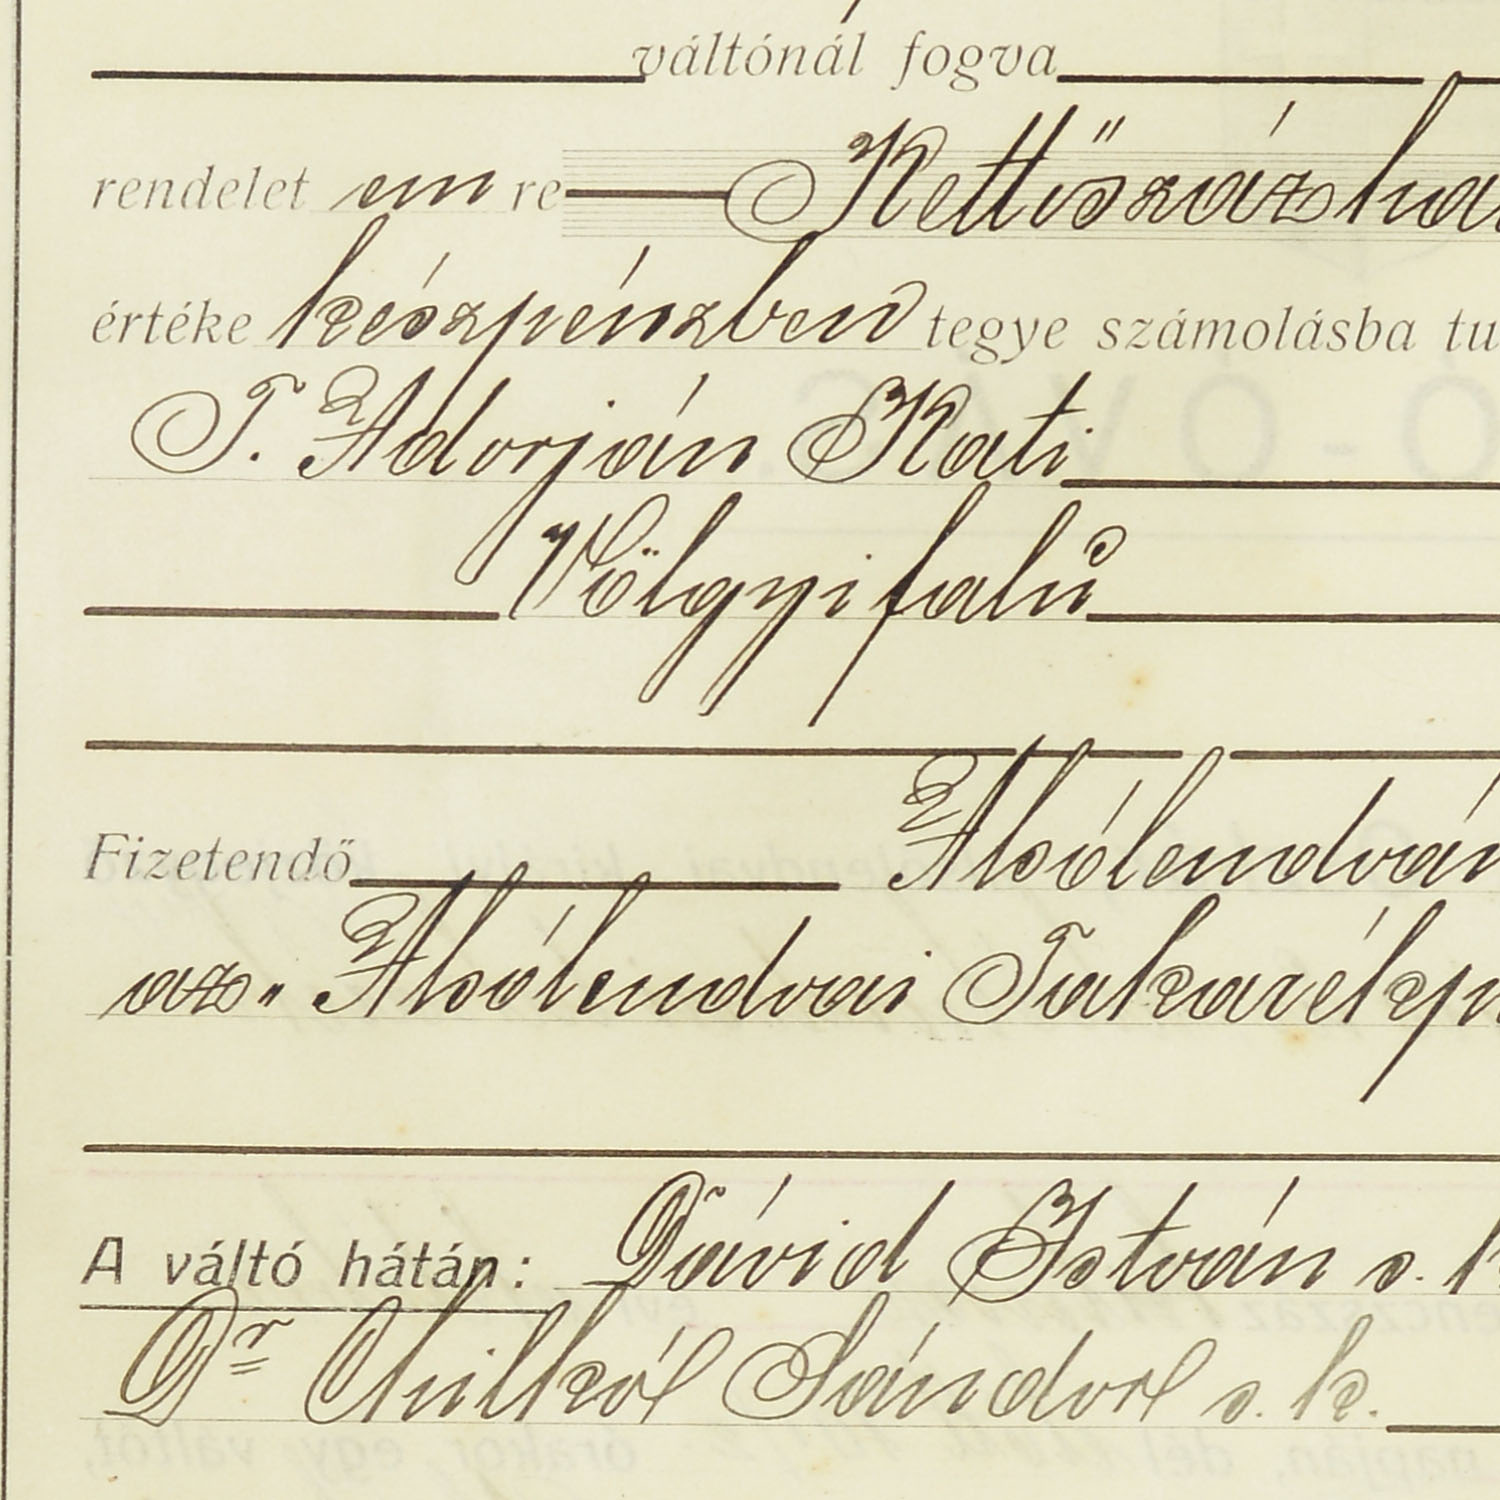 váltónál fogva
rendelet em re Kettőszáz ha
értéke készpénzben tegye számolásba tu
T. Adorján Kati
Völgyifalu
Fizetendő Alsólendván
az „Alsólendvai Takarékp
A váltó hátán: Dávid István s. k
Dr Sándor s. k.